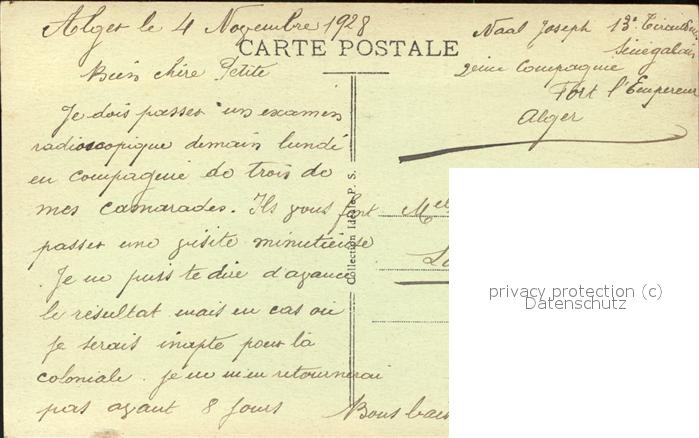 Alger le 4 Novembre 1928
CARTE POSTALE
Naal Joseph 13e Tirailleurs
Sénégalais
2eme Compagnie
Fort l'Empereur
Alger
Bien chère Petite
Je dois passer un examen
radioscopique demain lundi
en compagnie de trois de
mes camarades. Ils vous font
passer une visite minutieuse
. Je ne puis te dire d'avance
le résultat mais en cas où
je serais inapte pour la
coloniale. je ne m'en retournerai
pas avant 8 jours
Bons bais
Mel
Collection Idéale P. S.
privacy protection (c)
Datenschutz